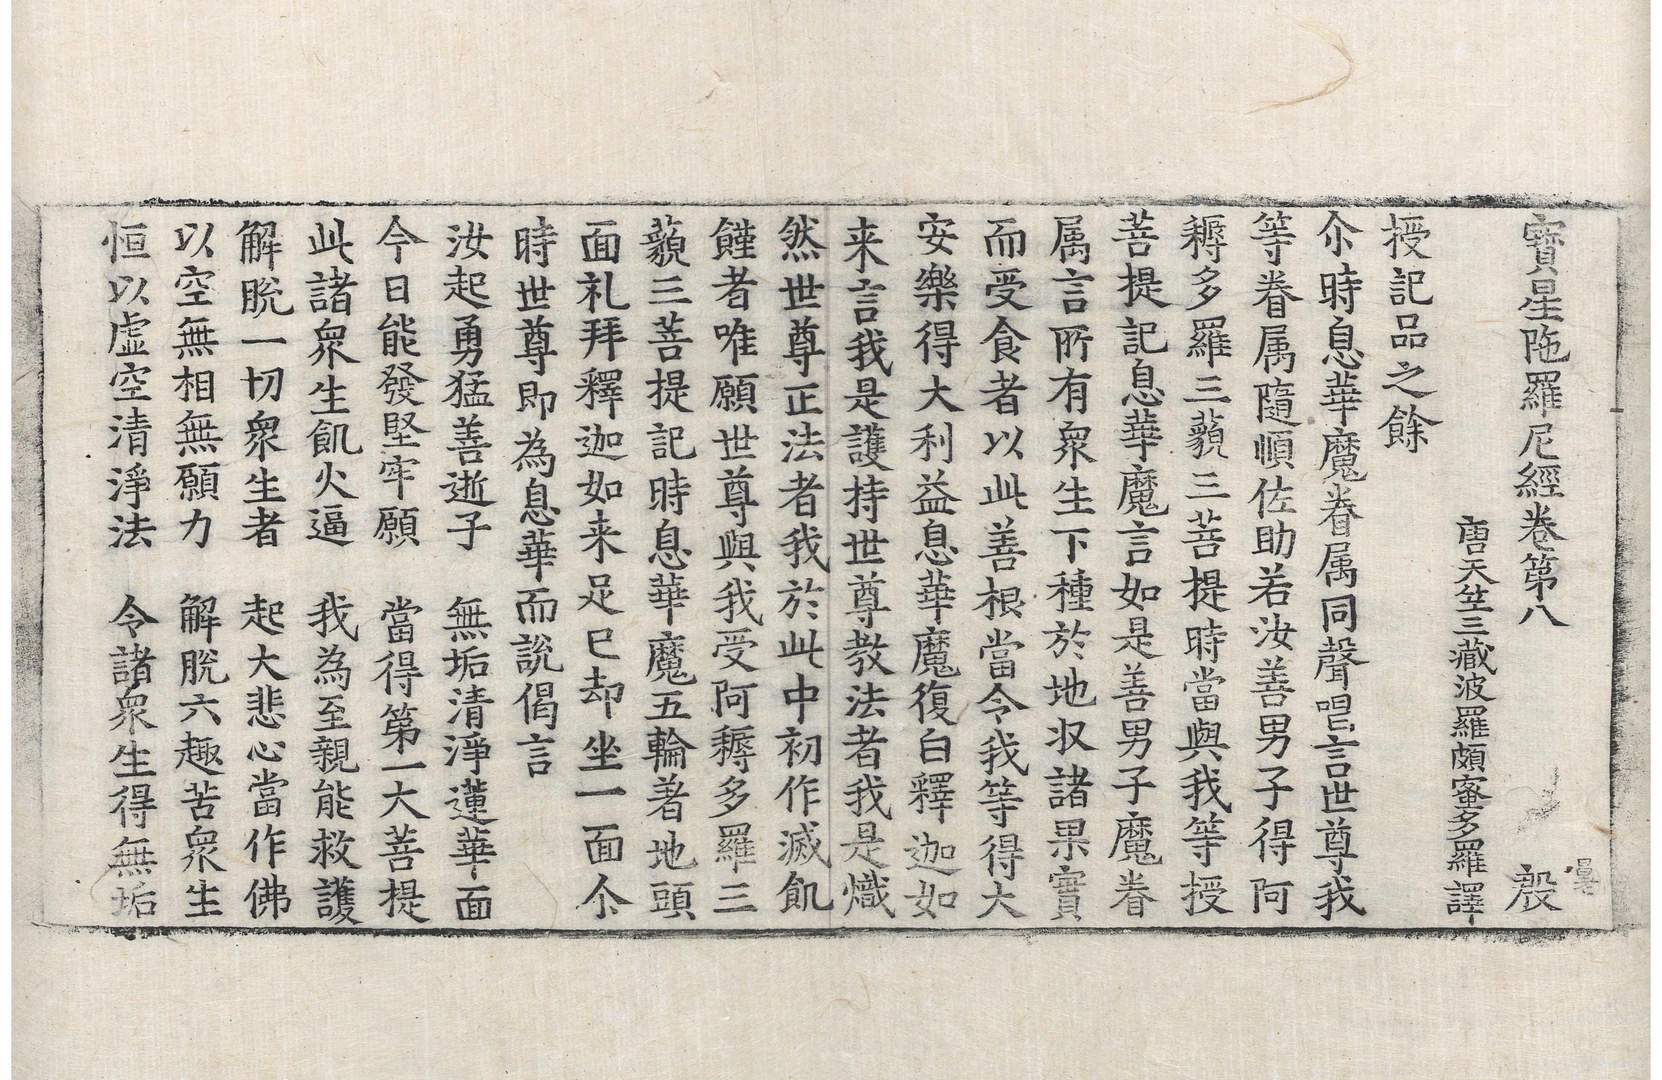 寶星陁羅尼經卷第八 殷
唐天竺三藏波羅頗蜜多羅譯
授記品之餘
尒時息華魔眷属同聲唱言世尊我
等眷属隨順佐助若汝善男子得阿
耨多羅三藐三菩提時當與我等授
菩提記息華魔言如是善男子魔眷
属言所有衆生下種於地収諸果實
而受食者以此善根當令我等得大
安樂得大利益息華魔復白釋迦如
来言我是護持世尊教法者我是熾
然世尊正法者我於此中初作滅飢
饉者唯願世尊與我受阿耨多羅三
藐三菩提記時息華魔五輪著地頭
面礼拜釋迦如来足已却坐一面尒
時世尊即為息華而說偈言
汝起勇猛善逝子　無垢清淨蓮華面
今日能發堅牢願　當得第一大菩提
此諸衆生飢火逼　我為至親能救護
解脫一切衆生者　起大悲心當作佛
以空無相無願力　解脫六趣苦衆生
恒以虛空清淨法　令諸衆生得無垢